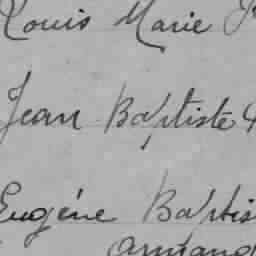 Louis Marie
Jean Baptiste
Eugéne Baptis
Armand